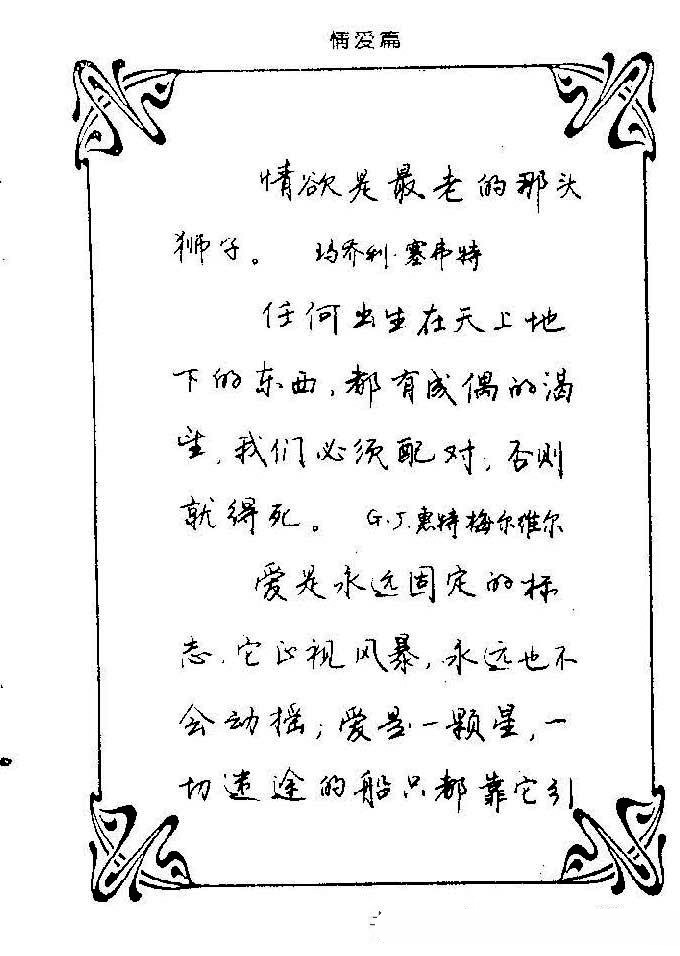 情爱篇
情欲是最老的那头
狮子。 玛乔利·塞韦特
任何出生在天上地
下的东西，都有成偶的渴
望，我们必须配对，否则
就得死。 G.J.惠特梅尔维尔
爱是永远固定的标
志，它正视风暴，永远也不
会动摇；爱是一颗星，一
切迷途的船只都靠它引